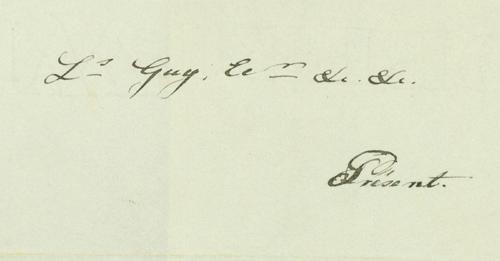 Ls Guy, Er &c. &c.
Présent.